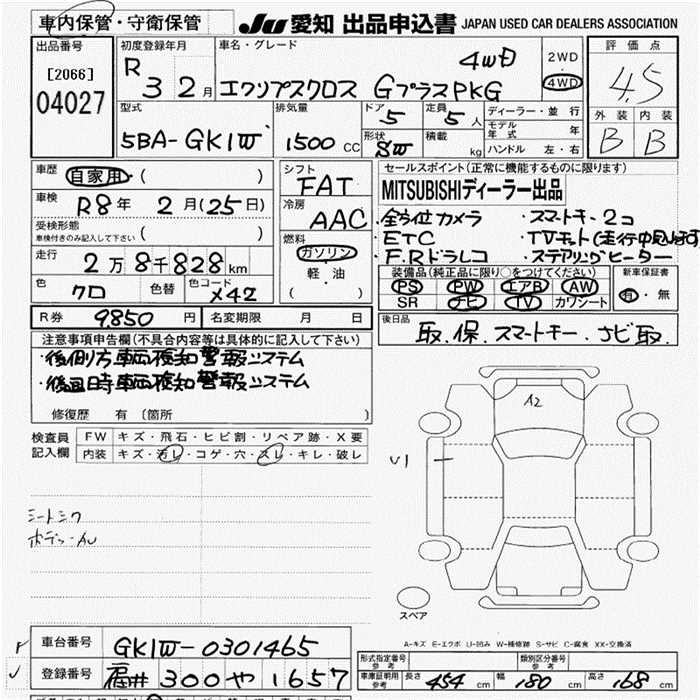 車内保管・守衛保管 JU 愛知 出品申込書 JAPAN USED CAR DEALERS ASSOCIATION
出品番号 [2066] 04027
初度登録年月 R 3 2月
車名・グレード エクリプスクロス GプラスPKG 4WD
2WD・4WD
評価点 4.5
外装 B 内装 B
型式 5BA-GK1W
排気量 1500 CC
ドア 5 定員 5人
形状 SW 積載 kg
ディーラー・並行
モデル年式 年
ハンドル 左・右
車歴 自家用・( )
車検 R8年 2月(25日)
受検形態 車検付きのみ記入して下さい ( )
走行 2万8千828km
色 クロ 色替 色コード X42
シフト FAT
冷房 AAC
燃料 ガソリン・軽・油 ( )
セールスポイント(正常に機能するものに限ります)
MITSUBISHIディーラー出品
・全方位カメラ ・スマートキー2コ
・ETC ・TVキット(走行中
・F.Rドラレコ ・ステアリングヒーター
装備品(純正品に限り○をつけてください)
PS PW エアB AW
SR ナビ TV カワシート
新車保証書 有・無
R券 9,850円 名変期限 月 日
後日品 取.保.スマートキー.ナビ取.
注意事項申告欄(不具合内容等は具体的に記入して下さい)
・後側方車両検知警報システム
・後退時車両検知警報システム
修復歴 有 〔箇所
検査員記入欄
FW キズ・飛石・ヒビ割・リペア跡・X要
内装 キズ・汚レ・コゲ・穴・スレ・キレ・破レ
A2
U1
シートシワ
スペア
A-キズ E-エクボ U-凹み W-補修跡 S-サビ C-腐食 XX-交換済
車台番号 GK1W-0301465
登録番号 福井 300 や 1657
形式指定番号 参考 類別区分番号 参考
車庫証明用 参考 長さ 454 cm 幅 180 cm 高さ 168 cm